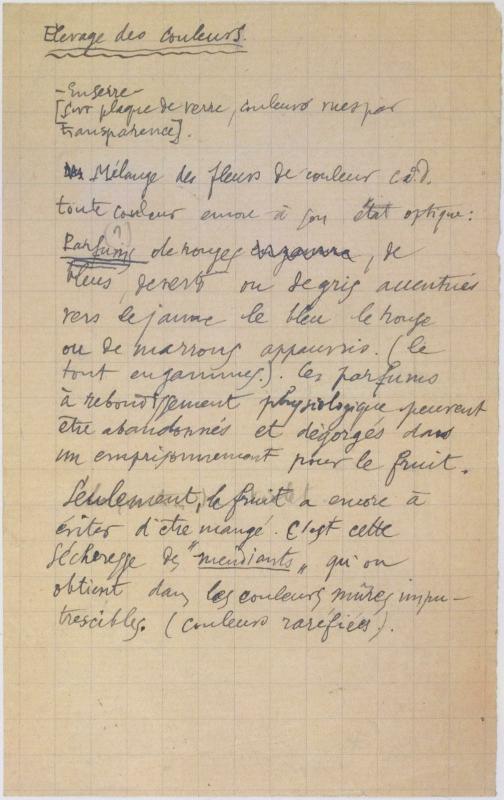 Elevage des couleurs.
- En serre -
[Sur plaque de verre, couleurs vues par
transparence].
Mélange des fleurs de couleur c.à.d.
toute couleur encore à son état optique:
(?)
Parfums de rouges, de
bleus, de verts ou de gris accentués
vers le jaune le bleu le rouge
ou de marrons appauvris. (le
tout en gammes.). Ces parfums
à rebondissement physiologique peuvent
être abandonnés et dégorgés dans
un emprisonnement pour le fruit.
Seulement, le fruit a encore à
éviter d'être mangé. C'est cette
sécheresse des "mendiants" qu'on
obtient dans les couleurs mûres impu-
trescibles. (couleurs raréfiées).